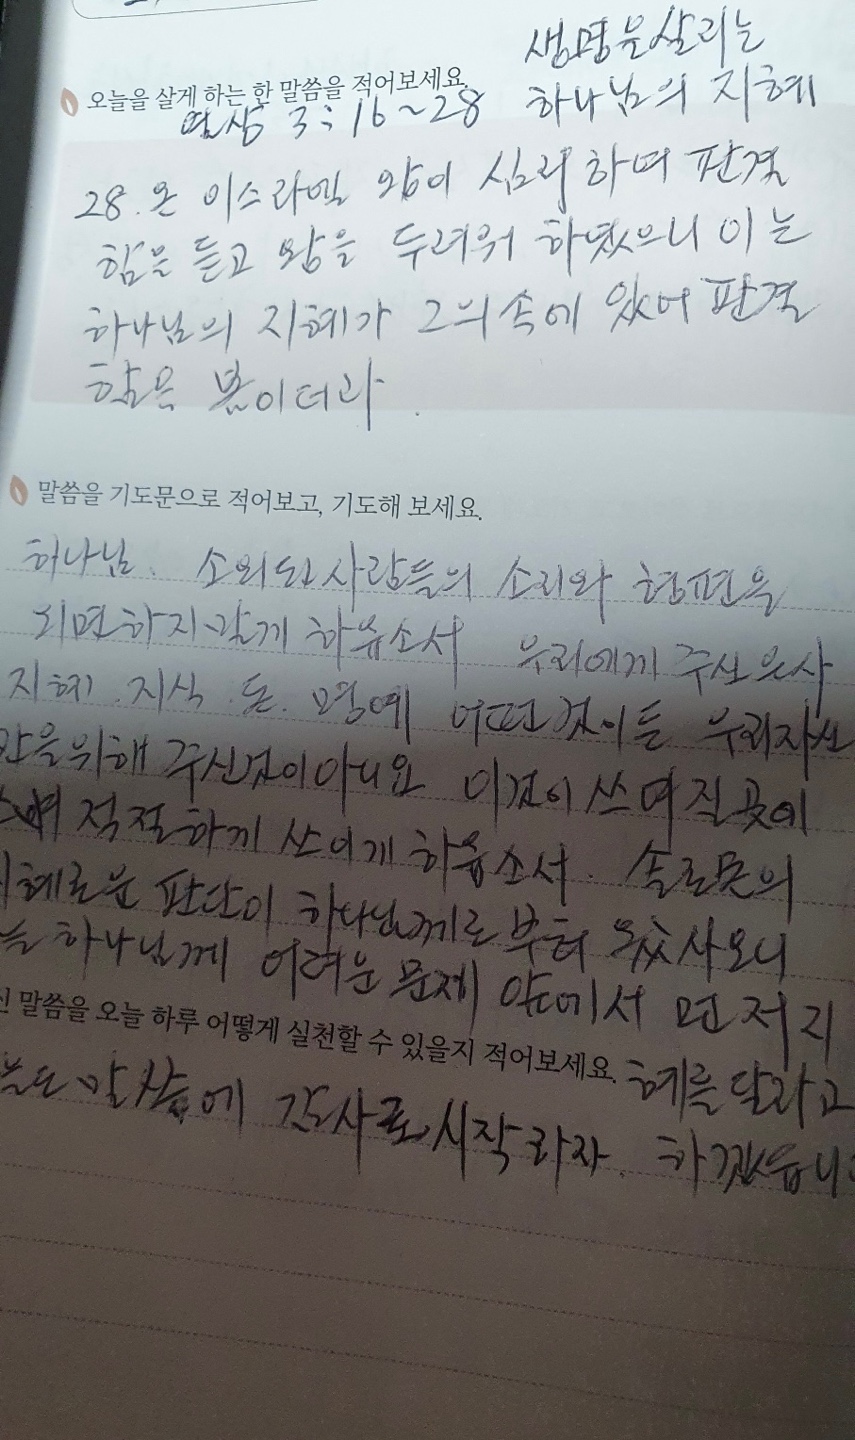 생명을 살리는
오늘을 살게 하는 한 말씀을 적어보세요.
하나님의 지혜
열상 3:16~28
28. 온 이스라엘 왕이 심리하여 판결
함을 듣고 왕을 두려워 하였으니 이는
하나님의 지혜가 그의 속에 있어 판결
함을 봄이더라.
말씀을 기도문으로 적어보고, 기도해 보세요.
하나님. 소외된 사람들의 소리와 형편을
외면하지 않게 하옵소서 우리에게 주신 은사
지혜. 지식. 돈. 명예 어떤것이든 우리자신
만을 위해 주신것이 아니요 이것이 쓰여질 곳에
적절하게 쓰이게 하옵소서. 솔로몬의
지혜로운 판단이 하나님께로 부터 왔사오니
하나님께 어려운 문제 앞에서 먼저 지
말씀을 오늘 하루 어떻게 실천할 수 있을지 적어보세요.
혜를 달라고
말씀에 감사로 시작하자.
하겠습니